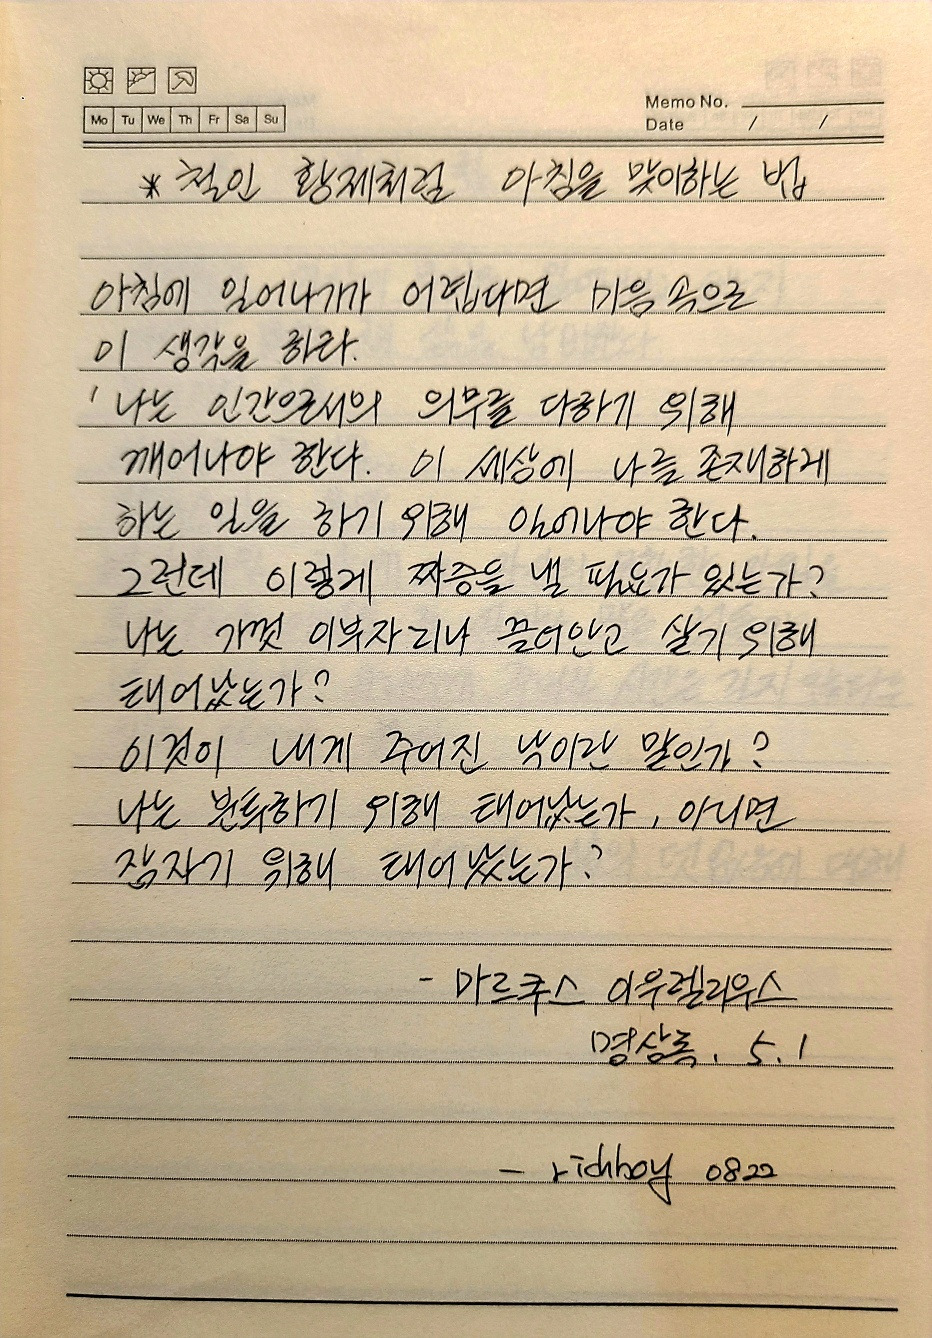 Mo Tu We Th Fr Sa Su
Memo No.
Date / /
* 철인 황제처럼 아침을 맞이하는 법
아침에 일어나기가 어렵다면 마음 속으로
이 생각을 하라.
'나는 인간으로서의 의무를 다하기 위해
깨어나야 한다. 이 세상에 나를 존재하게
하는 일을 하기 위해 일어나야 한다.
그런데 이렇게 짜증을 낼 필요가 있는가?
나는 기껏 이부자리나 끌어안고 살기 위해
태어났는가?
이것이 내게 주어진 낙이란 말인가?
나는 분투하기 위해 태어났는가, 아니면
잠자기 위해 태어났는가?
- 마르쿠스 아우렐리우스
명상록. 5.1
- richboy 0822